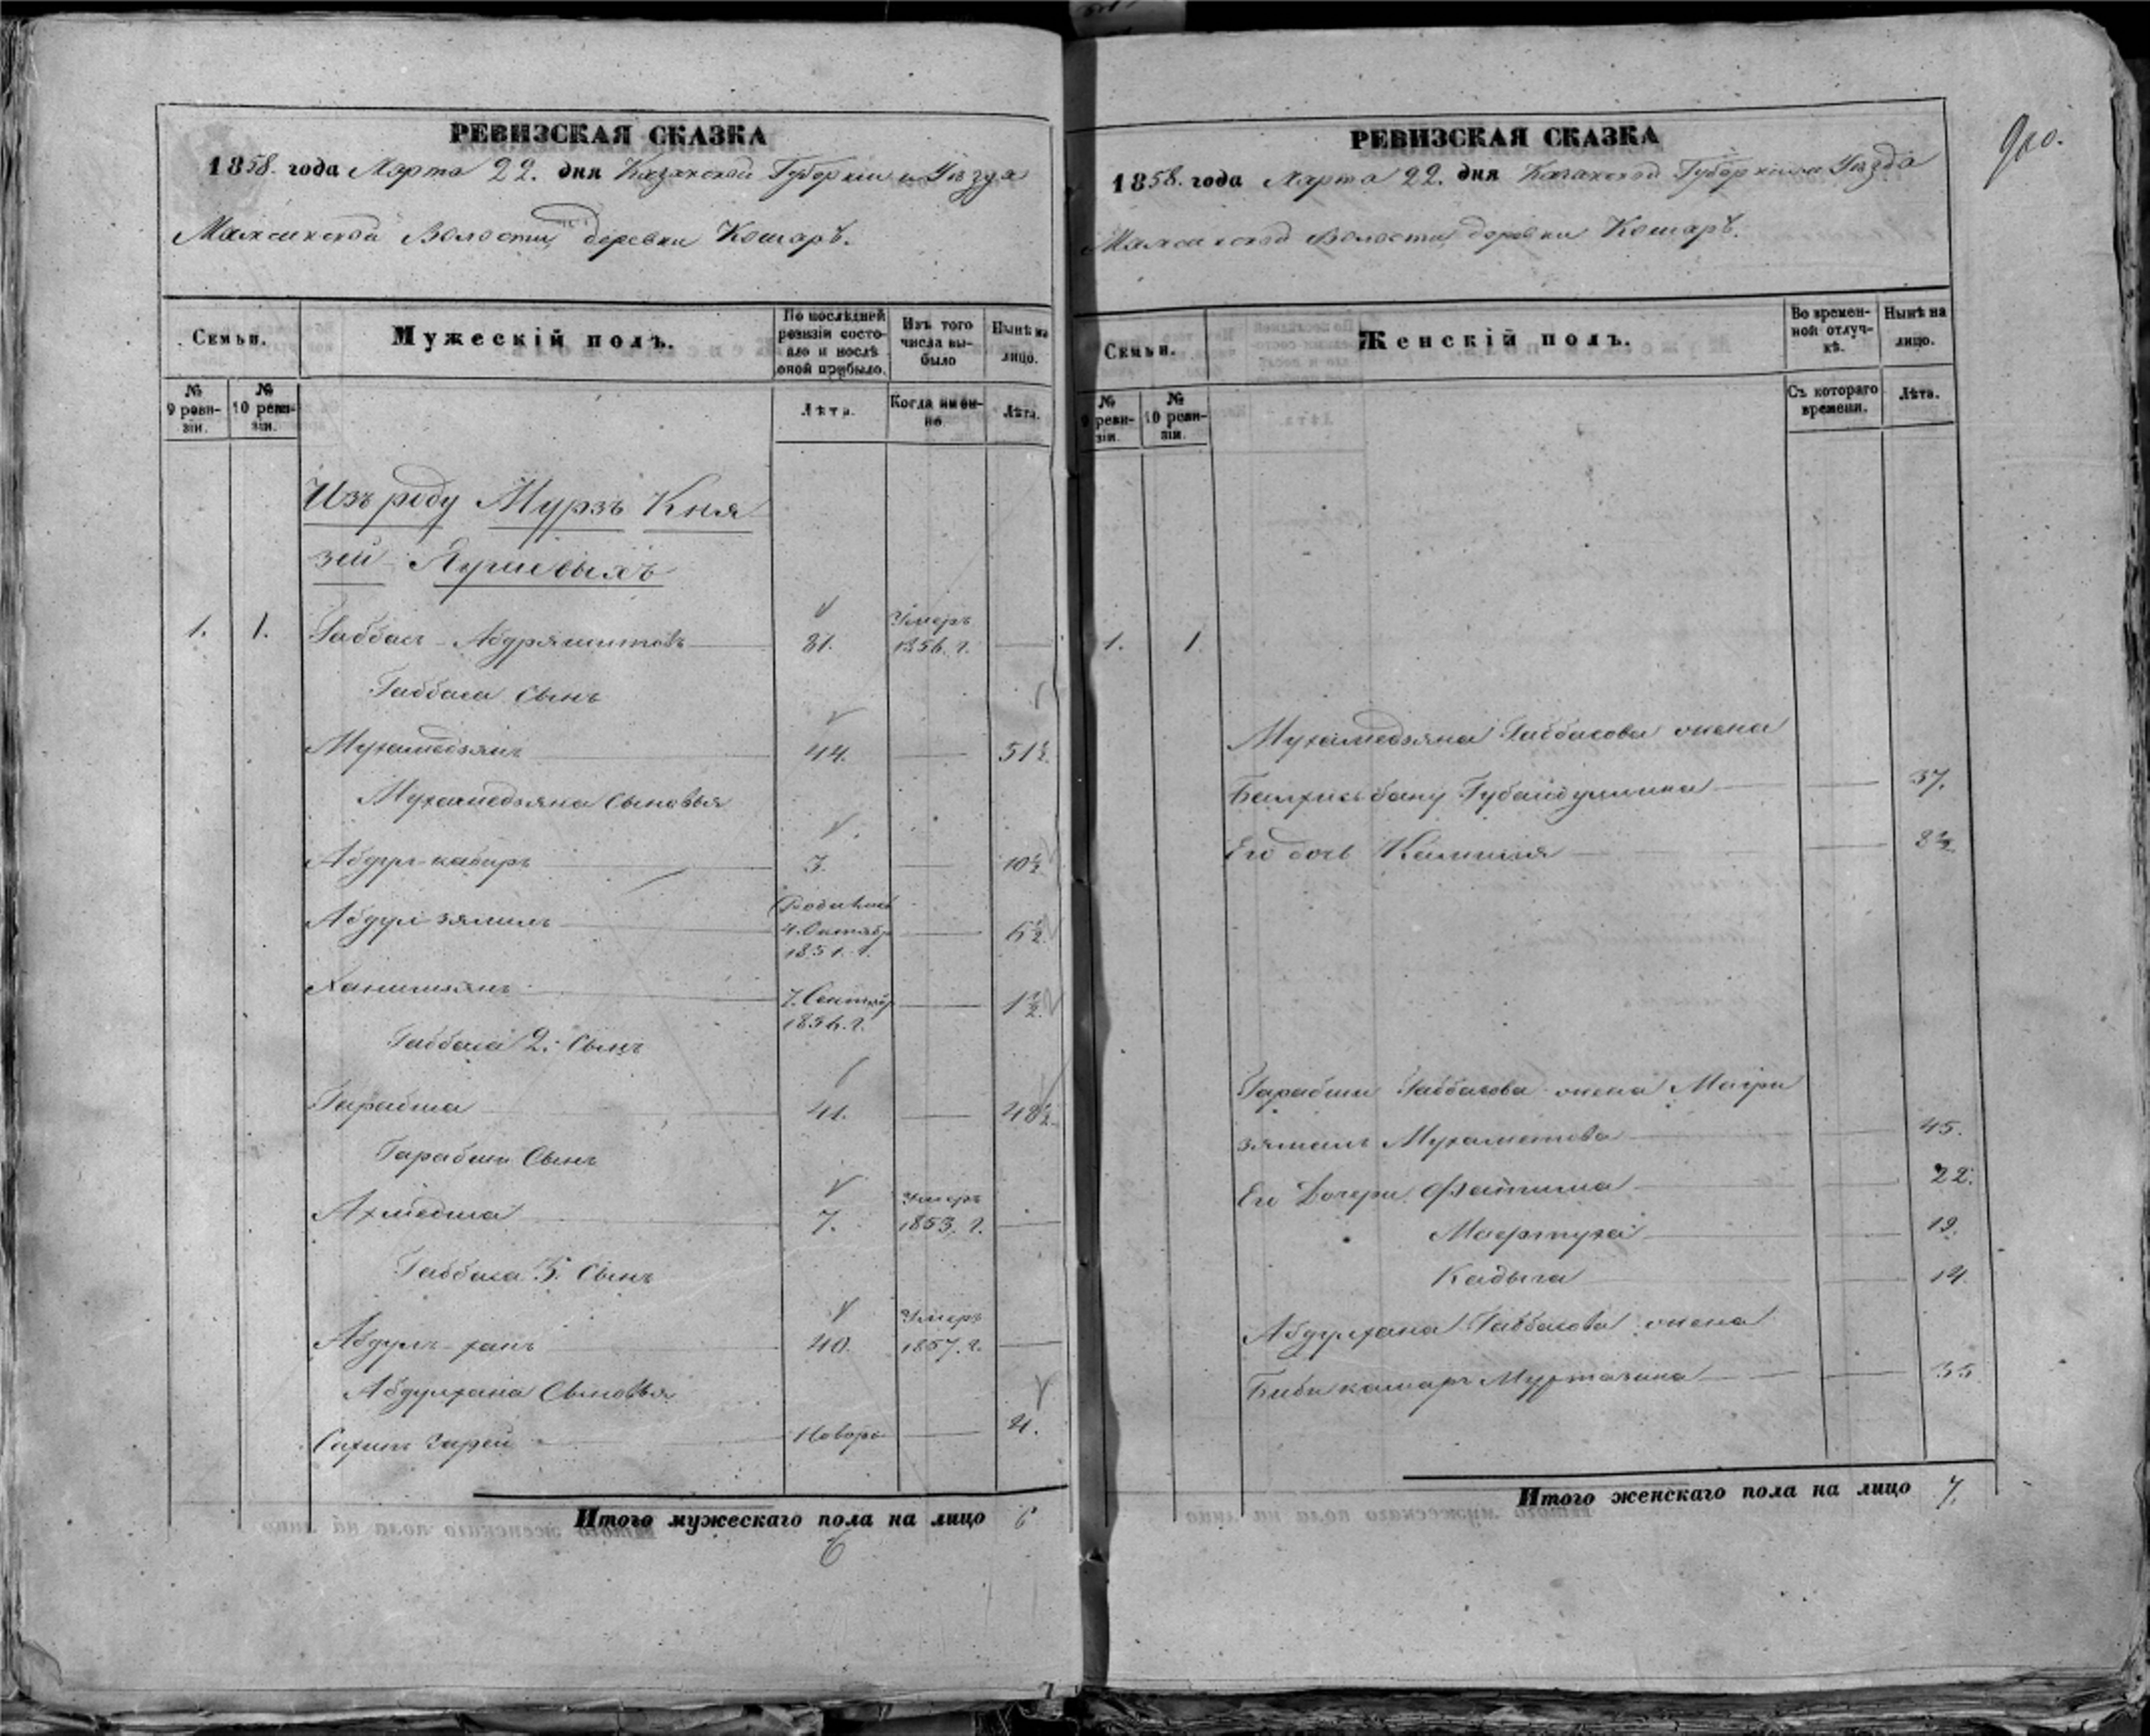 РЕВИЗСКАЯ СКАЗКА
1858. года Марта 22. дня Казанской Губерніи и Уѣзда
Волости деревни Кошаръ.
Семьи.
Мужескій полъ.
По послѣдней ревизіи состояло и послѣ оной прибыло.
Изъ того числа выбыло
Нынѣ на лицо.
№ 9 ревизіи.
№ 10 ревизіи.
Лѣта.
Когда именно
Лѣта.
Изъ роду Мурзъ Кня
зей Яушевыхъ
1. 1. Габбасъ Абдряшитовъ 81. Умеръ 1856. г.
Габбаса Сынъ
Мухамедзянъ 44. 51½.
Мухамедзяна Сыновья
Абдул-кабиръ 3. 10½
Абдул-зялиль Родился 4. Октябр 1851. г. 6½.
Ханишзянъ 7. Сентябр 1856. г. 1½.
Габбаса 2. Сынъ
Гарабша 41. 48½.
Гарабши Сынъ
Ахмедша 7. Умеръ 1853. г.
Габбаса 3. Сынъ
Абдулъ-ханъ 40. Умеръ 1857. г.
Абдулхана Сыновья
Сахипъ Гарей Новоро 4.
Итого мужескаго пола на лицо 6
6
РЕВИЗСКАЯ СКАЗКА
900.
1858. года Марта 22. дня Казанской Губерніи и Уѣзда
Волости деревни Кошаръ.
Семьи.
Женскій полъ.
Во временной отлучкѣ.
Нынѣ на лицо.
№ 9 ревизіи.
№ 10 ревизіи.
Съ котораго времени.
Лѣта.
1. 1.
Мухамедзяна Габбасова жена
Губайдуллина 37.
Его дочь 8½
Гарабши Габбасова жена Магри
зямаль Мухаметова 45.
Его Дочери Фатима 22.
19.
Кадыча 14.
Абдулхана Габбасова жена
Биби камаръ Муртазина 35
Итого женскаго пола на лицо 7.